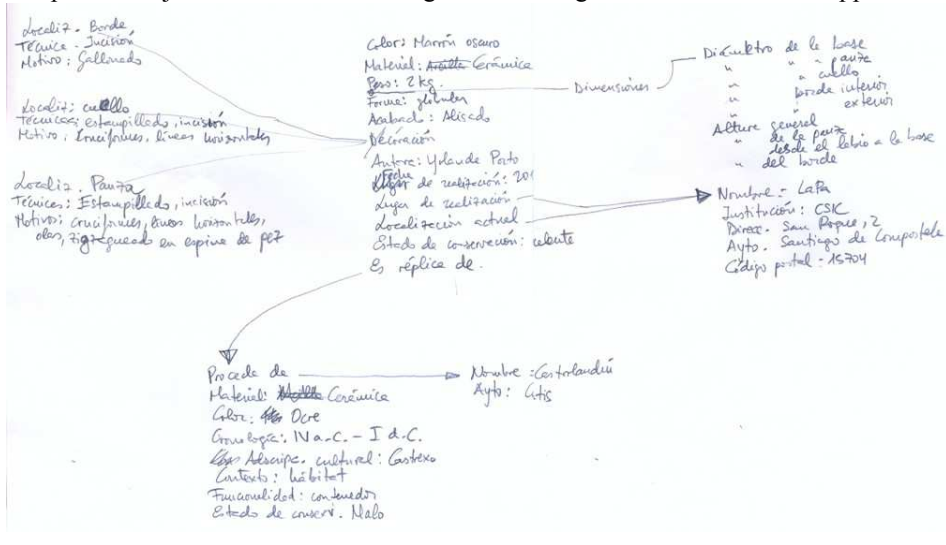 Localiz. Borde
Técnica. Incisión
Motivo: Gallonado
Localiz: cuello
Técnicas: estampillado, incisión
Motivo: Cruciformes, líneas horizontales
Localiz. Panza
Técnicas: Estampillado, incisión
Motivos: cruciformes, líneas horizontales,
olas, zigzagueado en espina de pez
Color: Marrón oscuro
Material: Arcilla Cerámica
Peso: 2 kg.
Forma: globular
Acabado: Alisado
Decoración
Autora: Yolanda Porto
Fecha de realización: 201
Lugar de realización
Localización actual
Estado de conservación:
Es réplica de.
Dimensiones
Diámetro de la base
" " panza
" " cuello
" borde interior
" " exterior
Altura general
" de la panza
" desde el labio a la base
" del borde
Nombre: LaPa
Institución: CSIC
Direcc. San Roque, 2
Ayto. Santiago de Compostela
Código postal: 15704
Procede de
Material: Arcilla Cerámica
Color: Ocre
Cronología: IV a.C. - I d.C.
Adscripc. cultural: Castrexo
Contexto: hábitat
Funcionalidad: contenedor
Estado de conserv. Malo
Nombre: Castrolandín
Ayto: